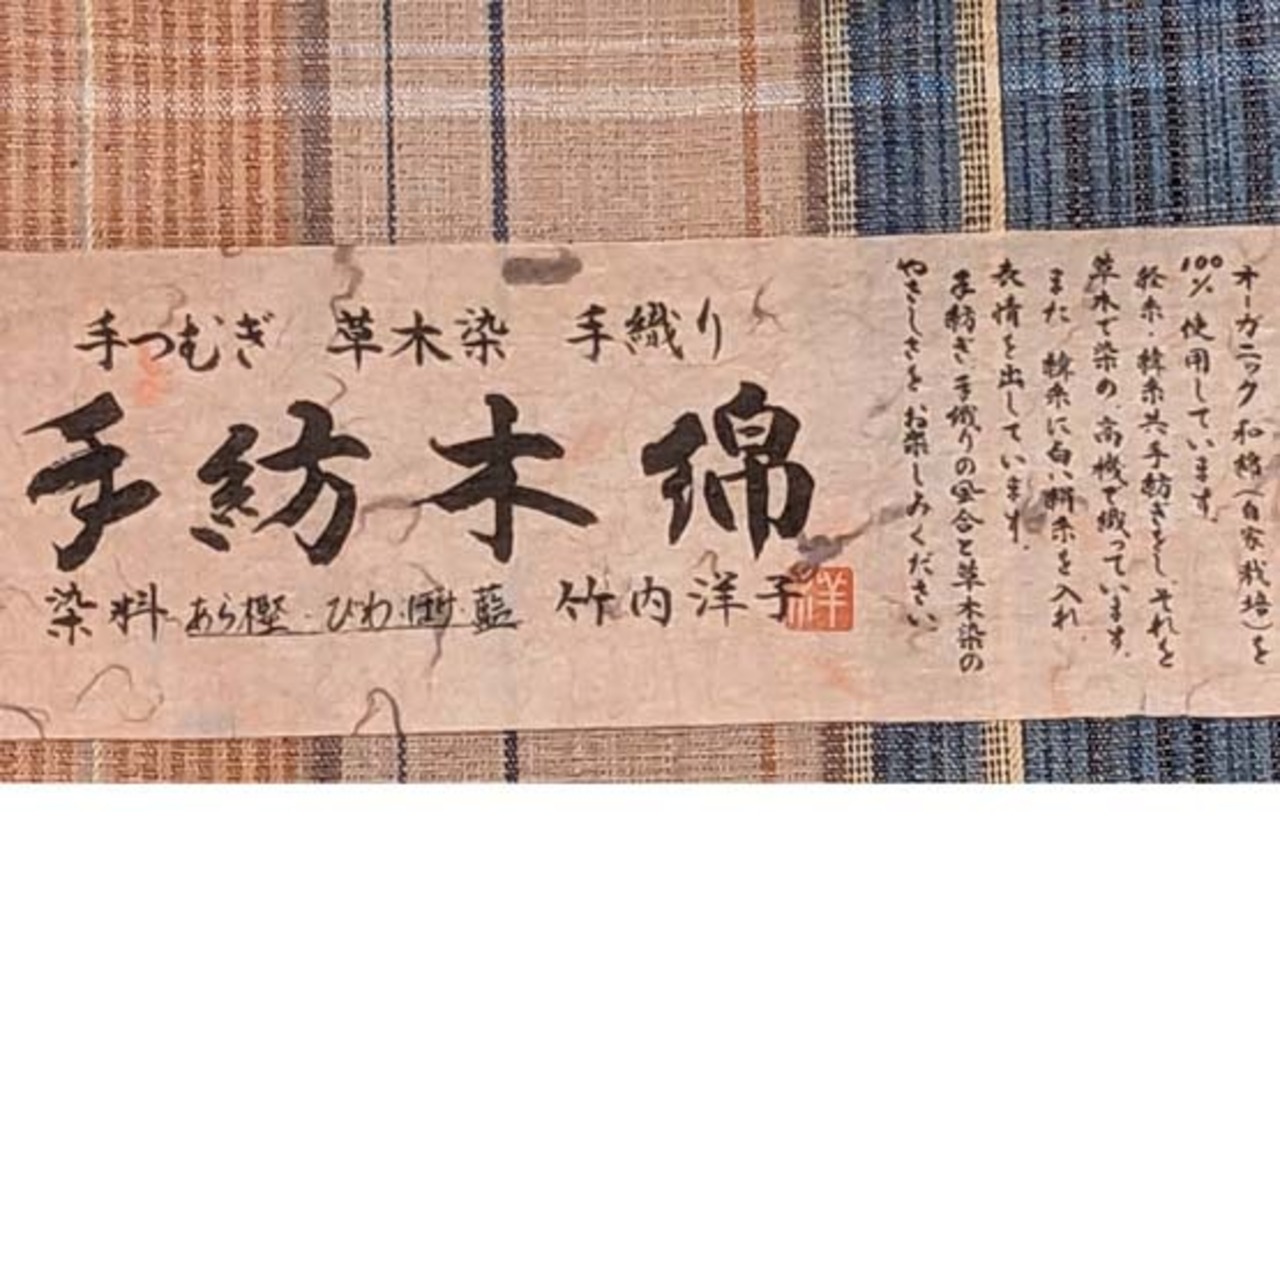 手つむぎ 草木染 手織り
手紡木綿
染料 あら樫・びわ・ 藍 竹内洋子
洋
オーガニック和綿(自家栽培)を
100%使用しています。
経糸・緯糸共手紡ぎをし、それを
草木で染め、高機で織っています。
また 緯糸に白い絣糸を入れ
表情を出しています。
手紡ぎ手織りの風合と草木染の
やさしさをお楽しみください